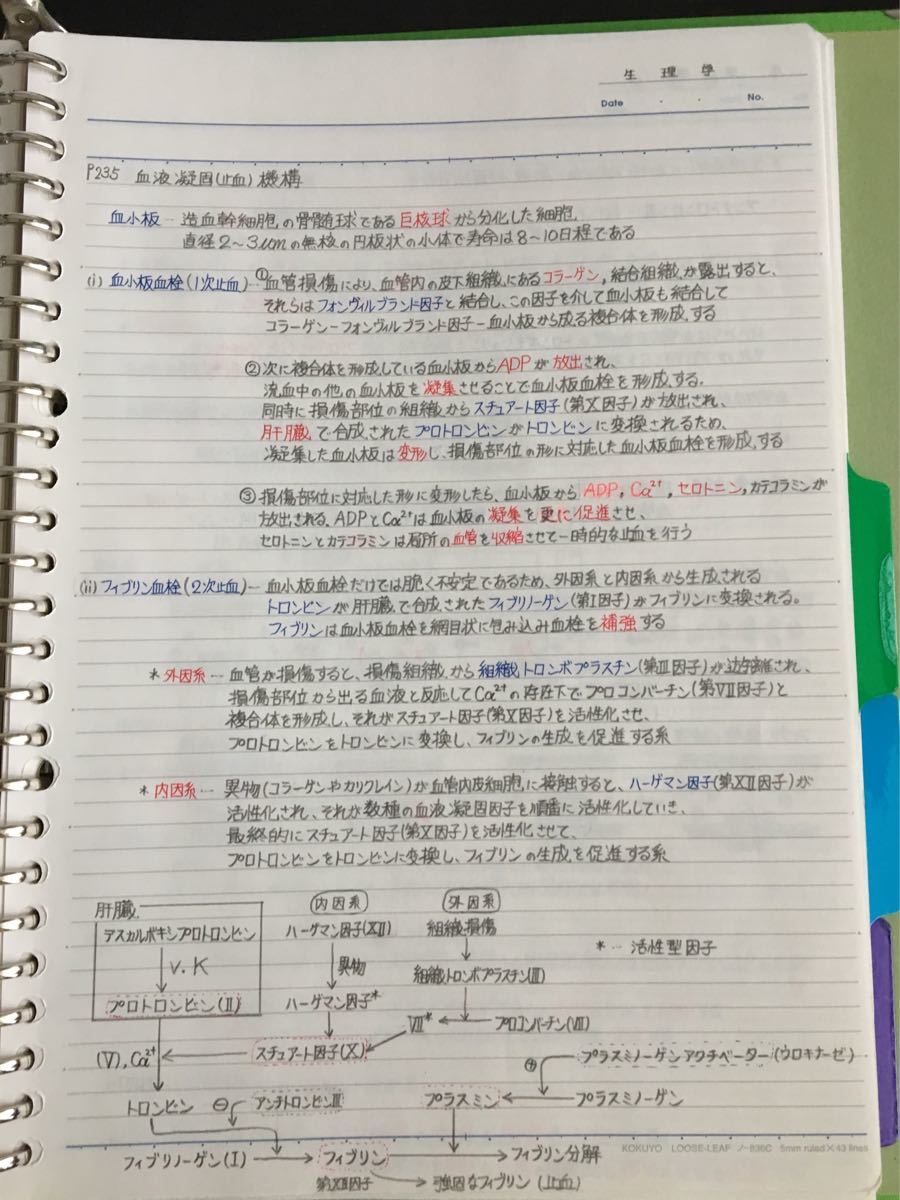 生理学
Date ・ ・ No.
P235 血液凝固(止血)機構
血小板 … 造血幹細胞の骨髄球である巨核球から分化した細胞
直径2~3μmの無核の円板状の小体で寿命は8~10日程である
(i) 血小板血栓(1次止血) … ①血管損傷により、血管内の皮下組織にあるコラーゲン,結合組織が露出すると、
それらはフォンヴィルブランド因子と結合し、この因子を介して血小板も結合して
コラーゲン-フォンヴィルブランド因子-血小板から成る複合体を形成する
②次に複合体を形成している血小板からADPが放出され、
流血中の他の血小板を凝集させることで血小板血栓を形成する.
同時に損傷部位の組織からスチュアート因子(第X因子)が放出され、
肝臓で合成されたプロトロンビンがトロンビンに変換されるため、
凝集した血小板は変形し、損傷部位の形に対応した血小板血栓を形成する
③損傷部位に対応した形に変形したら、血小板からADP, Ca²⁺, セロトニン,カテコラミンが
放出される、ADPとCa²⁺は血小板の凝集を更に促進させ、
セロトニンとカテコラミンは局所の血管を収縮させて一時的な止血を行う
(ii) フィブリン血栓(2次止血) … 血小板血栓だけでは脆く不安定であるため、外因系と内因系から生成される
トロンビンが肝臓で合成されたフィブリノーゲン(第I因子)がフィブリンに変換される。
フィブリンは血小板血栓を網目状に包み込み血栓を補強する
* 外因系 … 血管が損傷すると、損傷組織から組織トロンボプラスチン(第III因子)が遊離され、
損傷部位から出る血液と反応してCa²⁺の存在下でプロコンバーチン(第VII因子)と
複合体を形成し、それがスチュアート因子(第X因子)を活性化させ、
プロトロンビンをトロンビンに変換し、フィブリンの生成を促進する系
* 内因系 … 異物(コラーゲンやカリクレイン)が血管内皮細胞に接触すると、ハーゲマン因子(第XII因子)が
活性化され、それが数種の血液凝固因子を順番に活性化していき、
最終的にスチュアート因子(第X因子)を活性化させて、
プロトロンビンをトロンビンに変換し、フィブリンの生成を促進する系
肝臓 内因系 外因系
デスカルボキシプロトロンビン ハーゲマン因子(XII) 組織損傷 * … 活性型因子
V.K 異物 組織トロンボプラスチン(III)
プロトロンビン(II) ハーゲマン因子* VII* ← プロコンバーチン(VII)
(V), Ca²⁺ ← スチュアート因子(X) プラスミノーゲンアクチベーター(ウロキナーゼ)
トロンビン ⊖ アンチトロンビンIII プラスミン ← ⊕ プラスミノーゲン
フィブリノーゲン(I) → フィブリン → フィブリン分解
第XIII因子 → 強固なフィブリン(止血)
KOKUYO LOOSE-LEAF ノ-836C 5mm ruled×43 lines